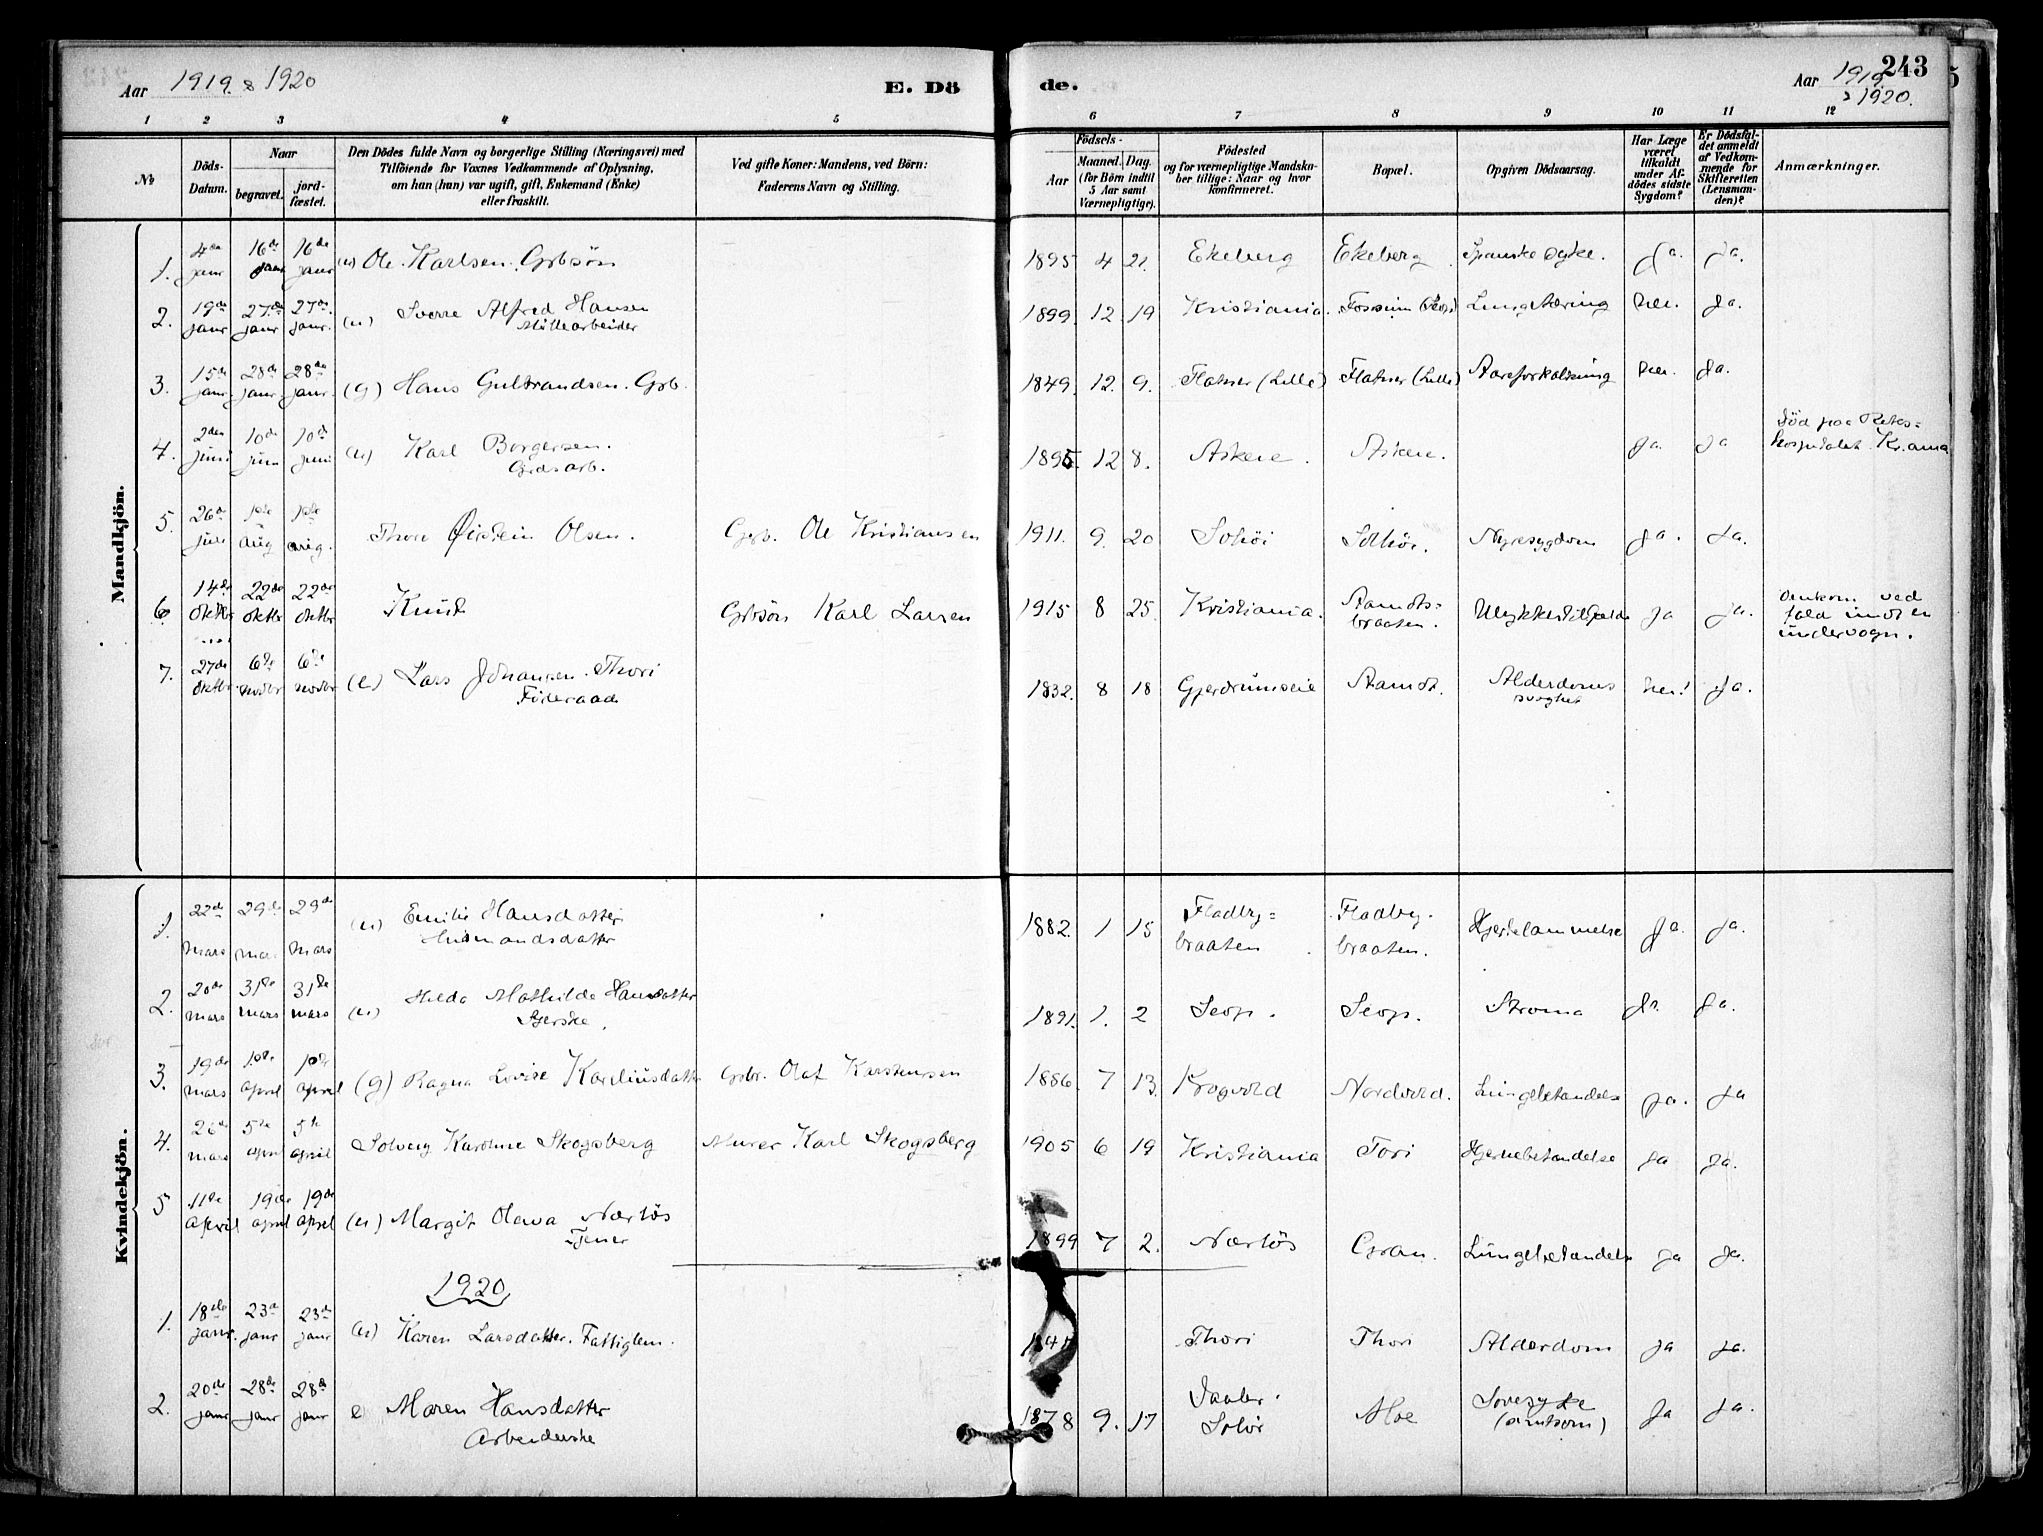 Aar 1919 & 1920
E. Dö
de.
243
Aar 1919 & 1920.
1 2 3 4 5 6 7 8 9 10 11 12
№
Döds-Datum.
Naar
begravet.
jord-fæstet.
Den Dödes fulde Navn og borgerlige Stilling (Næringsvei) med
Tilföiende for Voxnes Vedkommende af Oplysning,
om han (hun) var ugift, gift, Enkemand (Enke)
eller fraskilt.
Ved gifte Koner: Mandens, ved Börn:
Faderens Navn og Stilling.
Födsels-
Aar
Maaned. Dag.
(for Börn indtil
5 Aar samt
Værnepligtige).
Födested
og for værnepligtige Mandska-
ber tillige: Naar og hvor
konfirmeret.
Bopæl.
Opgiven Dödsaarsag.
Har Læge
været
tilkaldt
under Af-
dödes sidste
Sygdom?
Er Dödsfal-
det anmeldt
af Vedkom-
mende for
Skifteretten
(Lensman-
den)?
Anmærkninger.
Mandkjön.
1. 4de janr 16de janr 16de janr (u) Ole Karlsen. Gbsön 1895 4 21. Ekeberg Ekeberg Spanske syke. Ja. Ja.
2. 19de janr 27de janr 27de janr. (u) Sverre Alfred Hansen Möllearbeider 1899. 12 19 Kristiania. Fossum Lungetæring nei. Ja.
3. 15de janr. 28de janr 28de janr. (g) Hans Gulbrandsen. Grb. 1849. 12. 9. Flatner (Lille) Flatner (Lille) Aareforkalkning nei. Ja.
4. 2den juni 10de juni 10de juni (u) Karl Borgersen. Grdsarb. 1895. 12 8. Askeie. Askeie. Ja. Ja Död paa Riks=hospitalet Kr.ania
5. 26de juli 1ste aug 1ste aug. Thore Öistein Olsen. Grb. Ole Kristiansen 1911. 9. 20 Solhöi Solhöi. Nyresygdom Ja. Ja.
6 14de oktbr 22de oktbr 22de oktbr Knut Gbsön Karl Larsen 1915 8 25. Kristiania. Aamots=braaten. Ulykkestilfælde Ja Ja. Omkom ved fald mot en undervogn.
7. 27de oktbr. 6te novbr 6te novbr (e) Lars Johansen Thori Föderaad 1832. 8 18 Gjerdrumseie Aamot. Alderdoms svaghet nei! Ja.
Kvindekjön.
1. 22de mars 29de mars 29de mars (u) Emilie Hansdatter Husmandsdatter 1882. 1 15 Fladby=braaten Fladby.braaten. Hjertelammelse Ja. Ja.
2. 20de mars 31te mars 31te mars (u) Hilda Mathilde Hansdatter 1891. 1. 2 Seop. Seop. Struma Ja. Ja.
3. 19de mars 1ste april 1ste april (g) Ragna Lovise Kareliusdatter Gbr. Olaf Karstensen 1886. 7 13. Krogvold Nordvold. Lungebetændelse Ja. Ja
4. 26de mars 5te april 5te april Solveig Karoline Skogsberg Murer Karl Skogsberg 1905 6 19 Kristiania Tori Hjernebetændelse Ja Ja.
5 11te april 19de april 19de april (u) Margit Olava Nærlös Tjener 1899 7 2. Nærlös Gran. Lungebetændelse Ja Ja.
1920
1. 18de janr. 23de janr 23de janr (u) Karen Larsdatter. Fattiglem. Thori Thori Alderdom Ja Ja.
2. 20de janr 28de janr 28de janr e) Maren Hansdatter Arbeiderske 1878 9. 17 Vaaler. Solör Aloe Sovesyke (smitsom) Ja Ja.